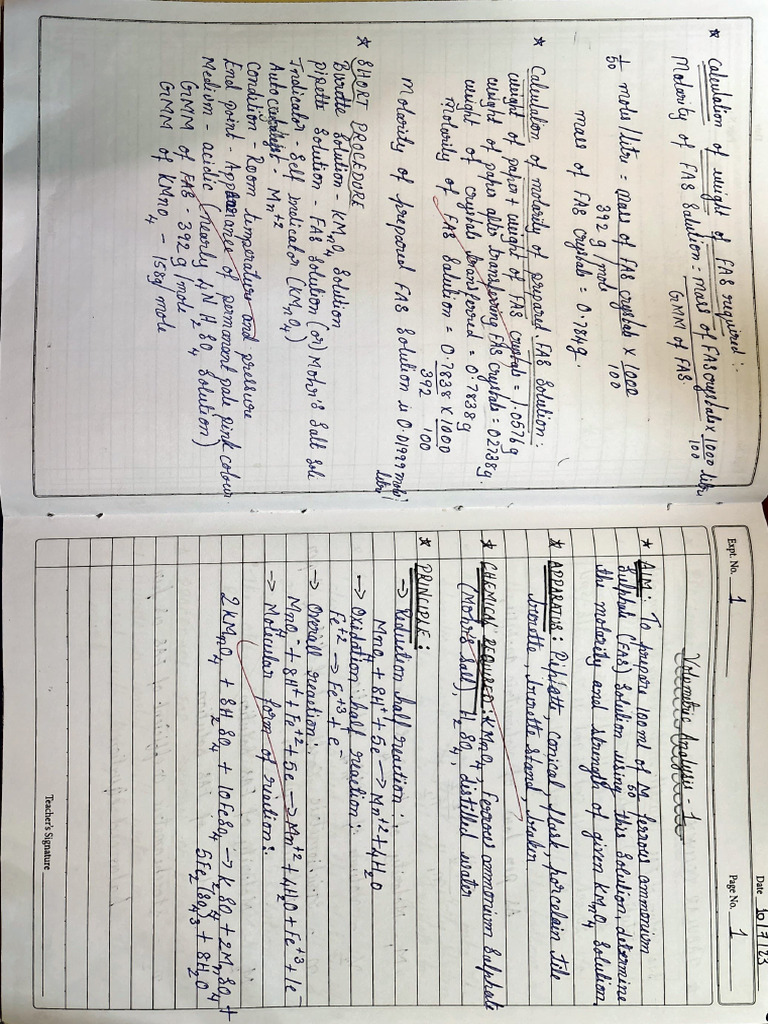 ★ Calculation of weight of FAS required:
Molarity of FAS Solution = mass of FAS crystals × 1000 litre
GMM of FAS 100
1/50 moles/litre = mass of FAS crystals × 1000
392 g/mol 100
mass of FAS crystals = 0.784g.
★ Calculation of molarity of prepared FAS Solution:
weight of paper + weight of FAS crystals = 1.0576g
weight of paper after transferring FAS crystals = 0.2738g
weight of crystals transferred = 0.7838g
Molarity of FAS Solution = 0.7838 × 1000
392 100
Molarity of prepared FAS Solution is 0.01999 moles/
litre
★ SHORT PROCEDURE
Burette Solution - KMnO4 Solution
Pipette Solution - FAS Solution (or) Mohr's Salt Sol
Indicator - Self indicator (KMnO4)
Auto catalyst - Mn+2
Condition Room temperature and pressure
End point - Appearance of permanant pale pink colour
Medium - acidic (nearly 4N H2SO4 Solution)
GMM of FAS - 392g/mole
GMM of KMnO4 - 158g/mole
Date 10/7/23
Expt. No. 1
Page No. 1
Volumetric Analysis - 1
★ AIM: To prepare 100ml of M/50 ferrous ammonium
Sulphate (FAS) Solution using this Solution, determine
the molarity and strength of given KMnO4 Solution.
★ APPARATUS: Pipette, conical flask, porcelain tile
burette, burette stand, beaker
★ CHEMICAL REQUIRED: KMnO4, Ferrous ammonium Sulphate
(Mohr's Salt), H2SO4, distilled water
★ PRINCIPLE:
→ Reduction half reaction:
MnO4 + 8H+ + 5e → Mn+2 + 4H2O
→ Oxidation half reaction:
Fe+2 → Fe+3 + e-
→ Overall reaction:
MnO4- + 8H+ + Fe+2 + 5e → Mn+2 + 4H2O + Fe+3 + 1e-
→ Molecular form of reaction:
2KMnO4 + 8H2SO4 + 10FeSO4 → K2SO4 + 2MnSO4 +
5Fe2(SO4)3 + 8H2O
Teacher's Signature